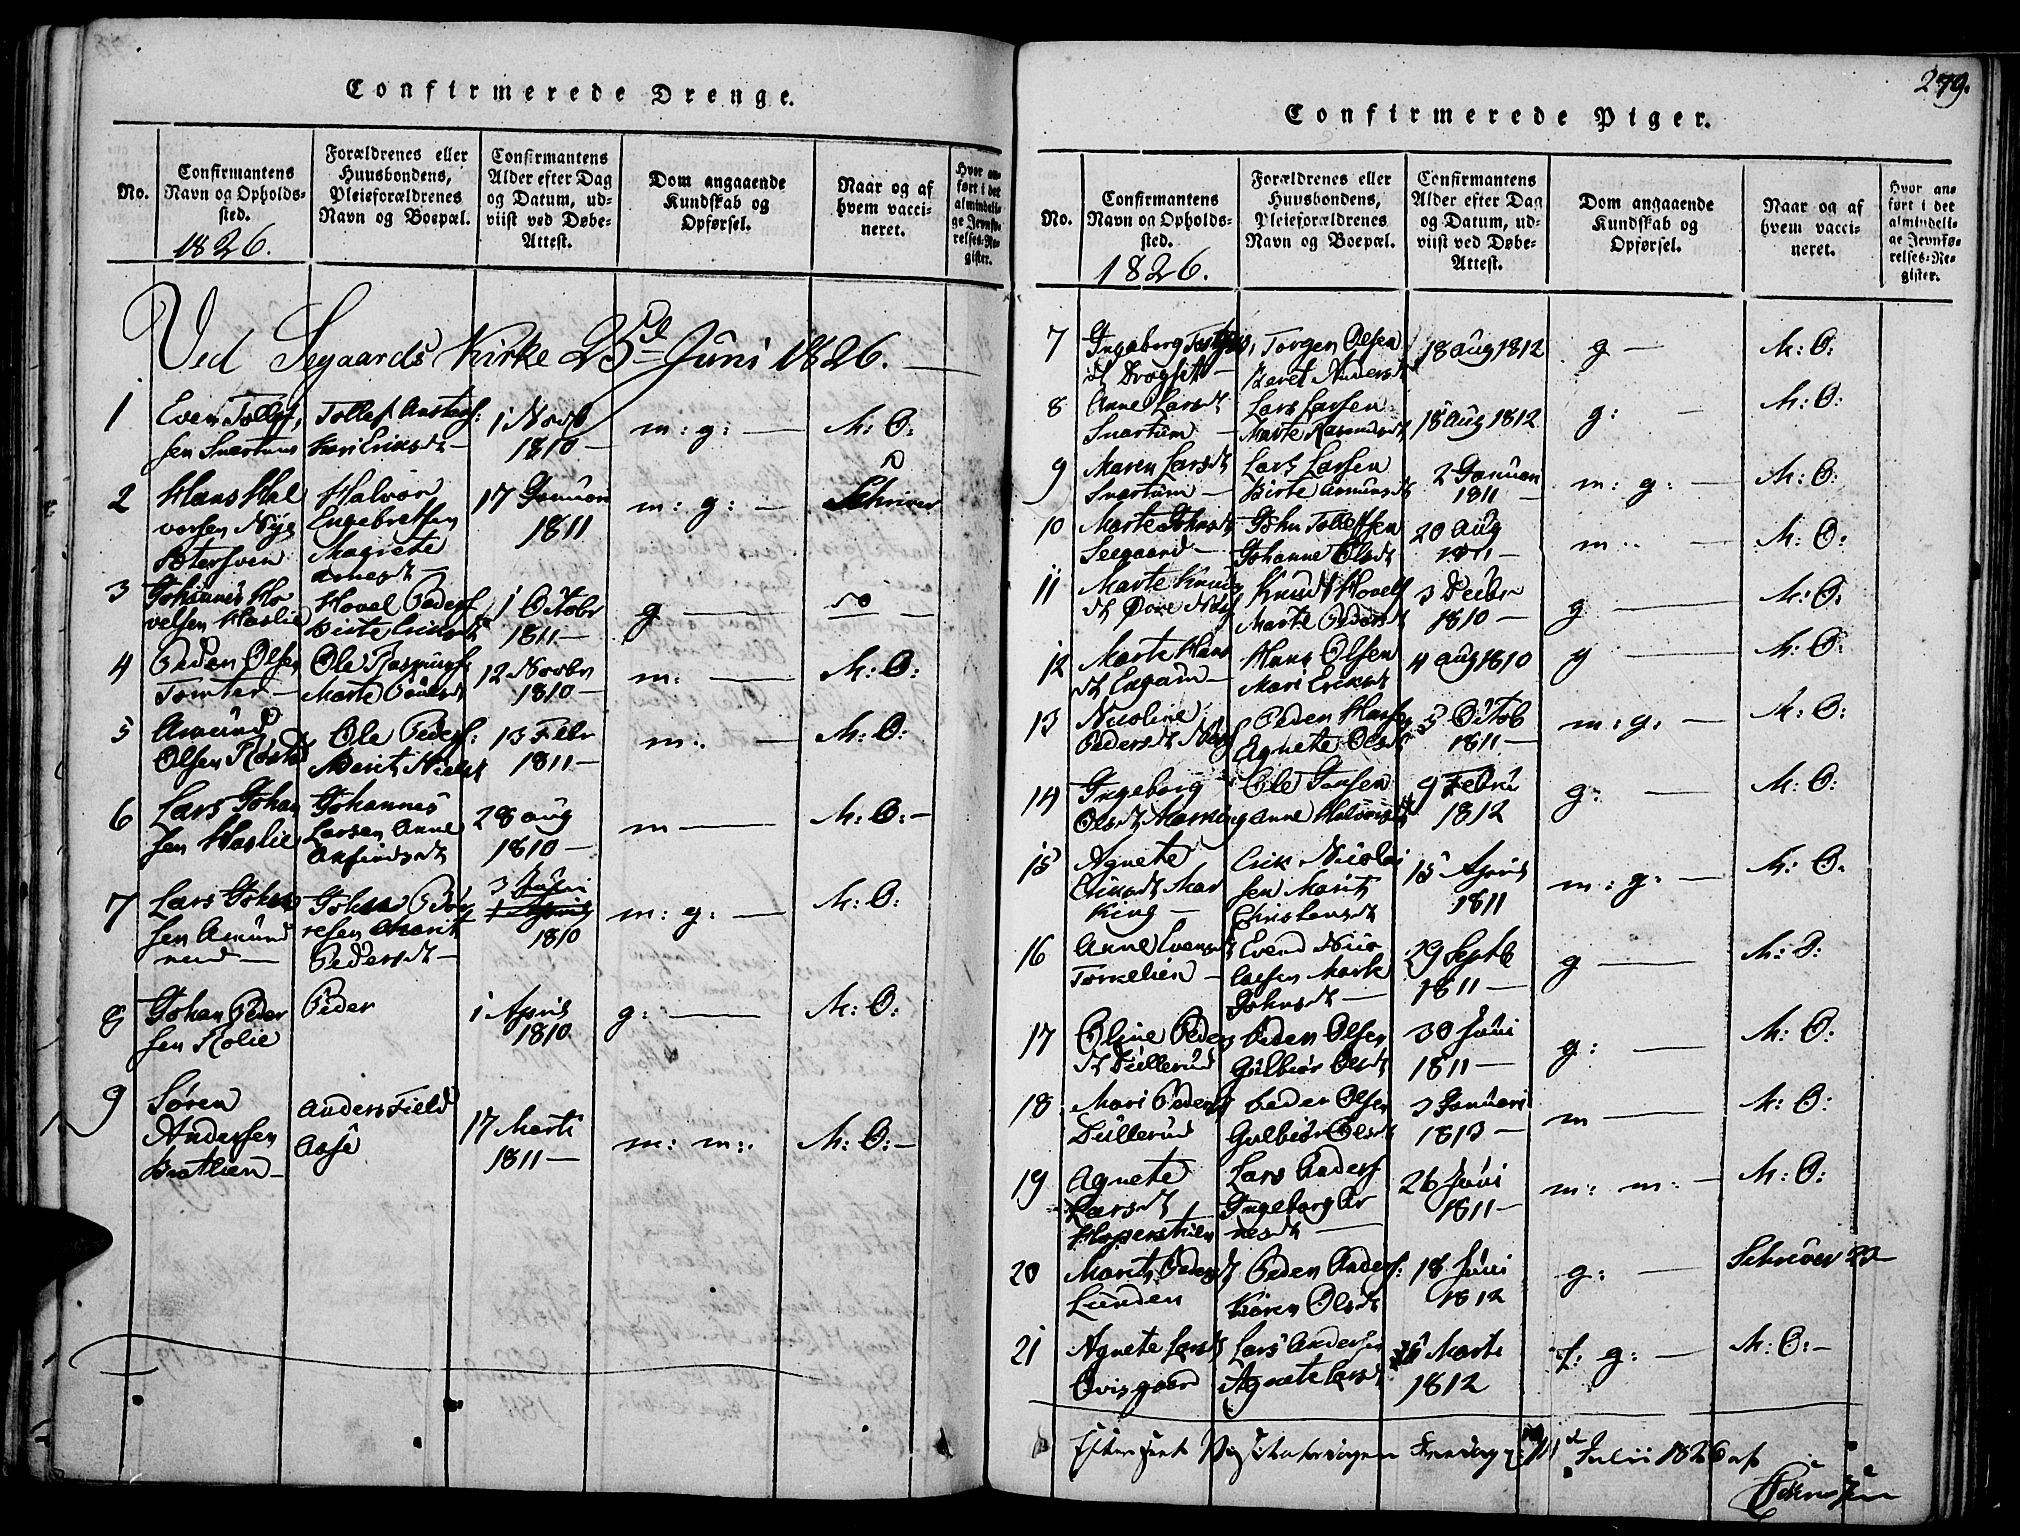 Confirmerede Drenge.
No.
Confirmantens
Navn og Opholds-
sted.
1826.
Forældrenes eller
Huusbondens,
Pleieforældrenes
Navn og Boepæl.
Confirmantens
Alder efter Dag
og Datum, ud-
viist ved Døbe-
Attest.
Dom angaaende
Kundskab og
Opførsel.
Naar og af
hvem vacci-
neret.
Hvor an-
ført i det
almindeli-
ge Jevnfø-
relses-Re-
gister.
Ved Segaards Kirke 25de Juni 1826.
1
Even Tollef
sen Svartum
Tollef
Kari Eriksdt
1 Novb
1810
m: g:
M: O:
2
Hans Hal
vorsen Nye
Halvor
Engebretsen
Magrete
17 Januari
1811
m: g: —
Schriver
3
Johannes Ho
velsen Haslie
Hovel Peders
Birte Eriksdt
1 Octobr
1811 —
g —
do —
4
Peder Olsen
Tomter —
Ole
Marte
12 Novbr
1810 —
m: —
M: O:
5
Amund
Olsen
Ole Peders:
Berit Nielsdt
13 Febr
1811 —
m: —
M: O:
6
Lars Johan
sen Haslie
Johannes
Larsen Anne
28 aug
1810 —
m —
M: O: —
7
Lars Johan
sen Amund
rud —
Johan Peder
resen Marit
Pedersdt —
3 Juni
1 April
1810
m: g: —
M: O:
8
Johan Peder
sen Rolie
Peder
1 April
1810
g: —
M: O:
9
Søren
Andersen
Bratlien —
Anders Field
Aase
17 Marti
1811 —
m: m:
M: O: —
279.
Confirmerede Piger.
No.
Confirmantens
Navn og Opholds-
sted.
1826.
Forældrenes eller
Huusbondens,
Pleieforældrenes
Navn og Boepæl.
Confirmantens
Alder efter Dag
og Datum, ud-
viist ved Døbe-
Attest.
Dom angaaende
Kundskab og
Opførsel.
Naar og af
hvem vacci-
neret.
Hvor an-
ført i det
almindeli-
ge Jevnfø-
relses-Re-
gister.
7
Ingeborg
Torgen Olsen
Beret Andersdt
18 aug 1812
g —
M: O:
8
Anne Larsdt
Svartum —
Lars Larsen
Marte
18 aug 1812
g: —
M: O:
9
Maren Larsdt
Svartum —
Lars Larsen
Birte
2 Januari
1811 —
m: g: —
M: O:
10
Marte Johnsdt
Seegaard —
John Tollefsen
Johanne Olsdt
20 aug
1811 —
m —
M: O:
11
Marte Knuds
dt
Knud Hovels
Marte Pedersdt
3 Decbr
1810 —
g —
M: O:
12
Marte Hans
dt Engam —
Hans Olsen
Mari Eriksdt
4 aug 1810
g —
M: O:
13
Nicoline
Pedersdt
Peder Hansen
Agnete Olsdt
5 Octob
1811 —
m: g: —
M: O:
14
Ingeborg
Olsdt Marking
Ole Jansen
Anne Halvorsdt
9 Febru
1812
g: —
M: O:
15
Agnete
Eriksdt Mar
king —
Erik Nicolai
sen Marit
Christensdt
15 April
1811
m: g: —
M: O:
16
Anne Evensdt
Torkelien —
Evend Nico
laesen Marte
Johnsdt —
29 Septb
1811 —
g —
M: O:
17
Oline Peders
dt Dullerud
Peder Olsen
Gulbiør Olsdt
30 Juni
1811 —
g: —
M: O:
18
Mari Pedersdt
Dullerud
Peder Olsen
Gulbiør Olsdt
3 Januari
1813 —
m —
M: O:
19
Agnete
Larsdt
Lars Anders
Ingeborg Ar
nesdt —
26 Juni
1811 —
m: m: —
M: O:
20
Marit Pedersdt
Lunden
Peder Anders:
Karen Olsdt
18 Juni
1812
g: —
Schriver
21
Agnete Larsdt
Qvisgaard
Lars Andersen
Agnete Larsdt
Marti
1812
t: g: —
M: O: —
Juli 1826 af